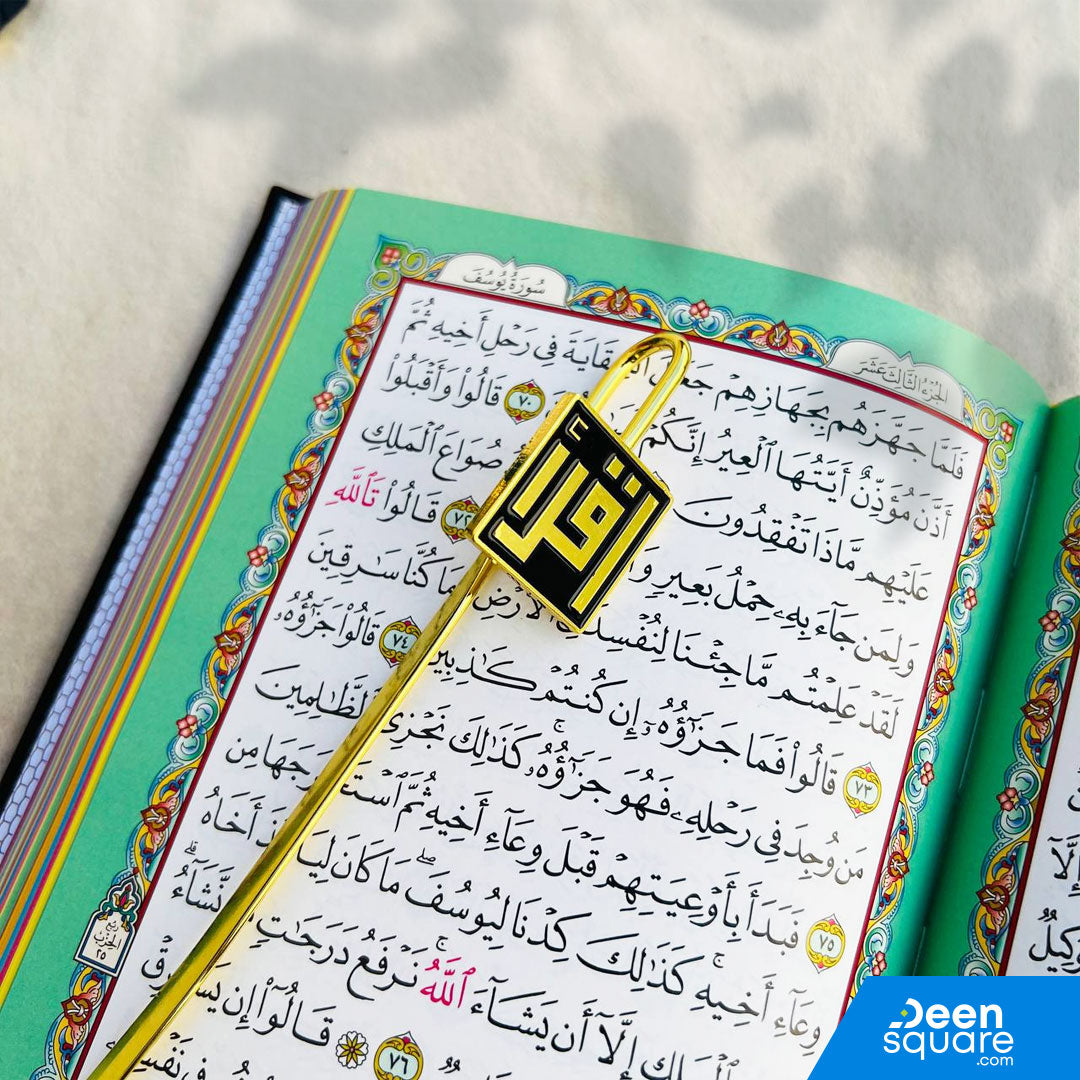 سُورَةُ يُوسُفَ
الجُزْءُ الثَّالِثَ عَشَرَ
فَلَمَّا جَهَّزَهُم بِجَهَازِهِمْ جَعَلَ فِى رَحْلِ أَخِيهِ ثُمَّ
أَذَّنَ مُؤَذِّنٌ أَيَّتُهَا ٱلْعِيرُ إِنَّكُمْ ٧٠ قَالُوا۟ وَأَقْبَلُوا۟
عَلَيْهِم مَّاذَا تَفْقِدُونَ صُوَاعَ ٱلْمَلِكِ
وَلِمَن جَآءَ بِهِۦ حِمْلُ بَعِيرٍ ٧٢ قَالُوا۟ تَٱللَّهِ
لَقَدْ عَلِمْتُم مَّا جِئْنَا لِنُفْسِدَ ٱلْأَرْضِ وَمَا كُنَّا سَٰرِقِينَ
٧٣ قَالُوا۟ فَمَا جَزَٰٓؤُهُۥٓ إِن كُنتُمْ كَٰذِبِينَ ٧٤ قَالُوا۟ جَزَٰٓؤُهُۥ
مَن وُجِدَ فِى رَحْلِهِۦ فَهُوَ جَزَٰٓؤُهُۥ ۚ كَذَٰلِكَ نَجْزِى ٱلظَّٰلِمِينَ
٧٥ فَبَدَأَ بِأَوْعِيَتِهِمْ قَبْلَ وِعَآءِ أَخِيهِ ثُمَّ ٱسْتَخْرَجَهَا مِن
وِعَآءِ أَخِيهِ ۚ كَذَٰلِكَ كِدْنَا لِيُوسُفَ ۖ مَا كَانَ لِيَأْخُذَ أَخَاهُ
ٱلْمَلِكِ إِلَّآ أَن يَشَآءَ ٱللَّهُ ۚ نَرْفَعُ دَرَجَٰتٍ نَّشَآءُ ۗ
٧٦ قَالُوٓا۟ إِن يَسْرِقْ
فِى نَفْسِهِۦ
ربع
الحزب
٢٥
اقرأ
إِلَّا
وَكِيلٌ
Deen
square
.com